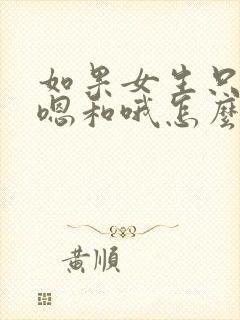 如果女生只
嗯和哦怎麼
黃順